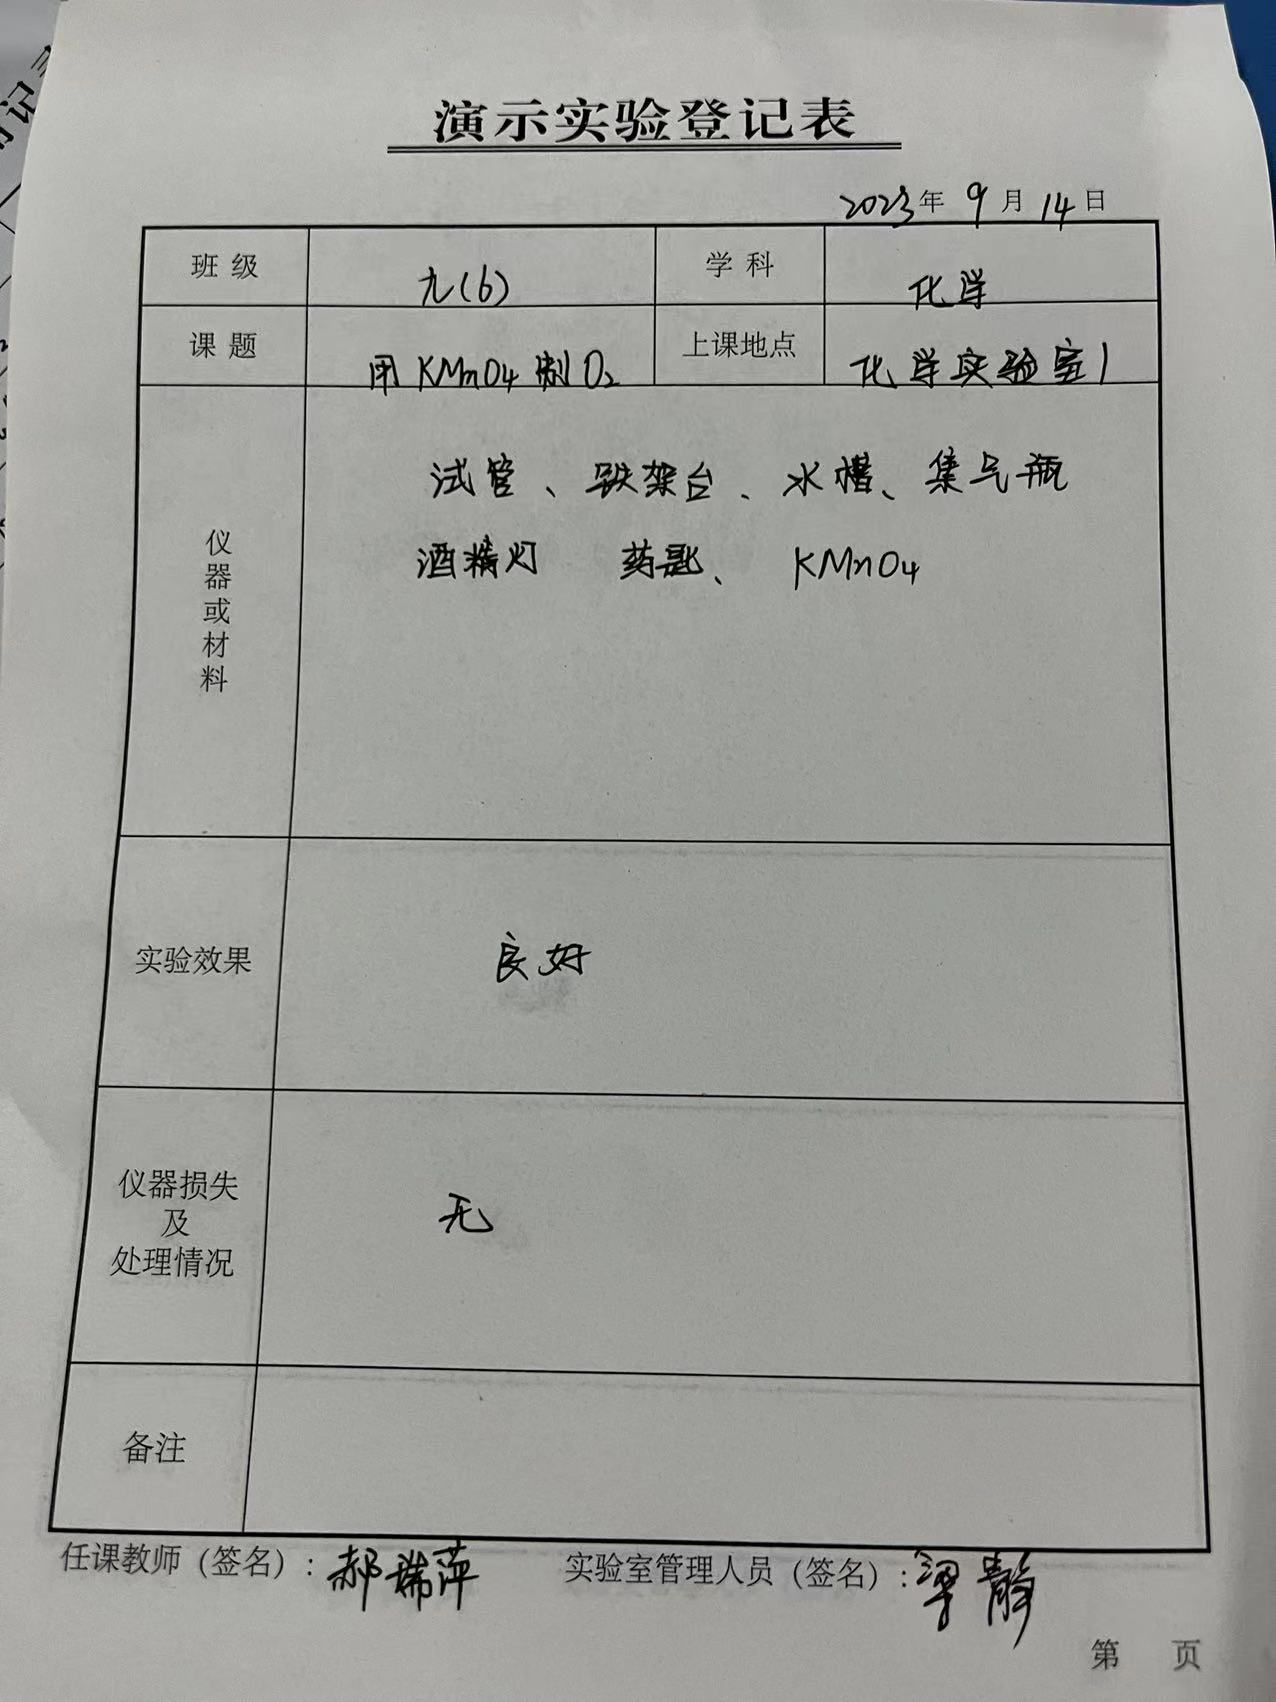 演示实验登记表
2023年 9月 14日
班级 九(6) 学科 化学
课题 用KMnO4制O2 上课地点 化学实验室1
仪器或材料
试管、铁架台、水槽、集气瓶
酒精灯 药匙、 KMnO4
实验效果 良好
仪器损失
及
处理情况
无
备注
任课教师（签名）: 郝瑞萍 实验室管理人员（签名）: 梁静
第 页